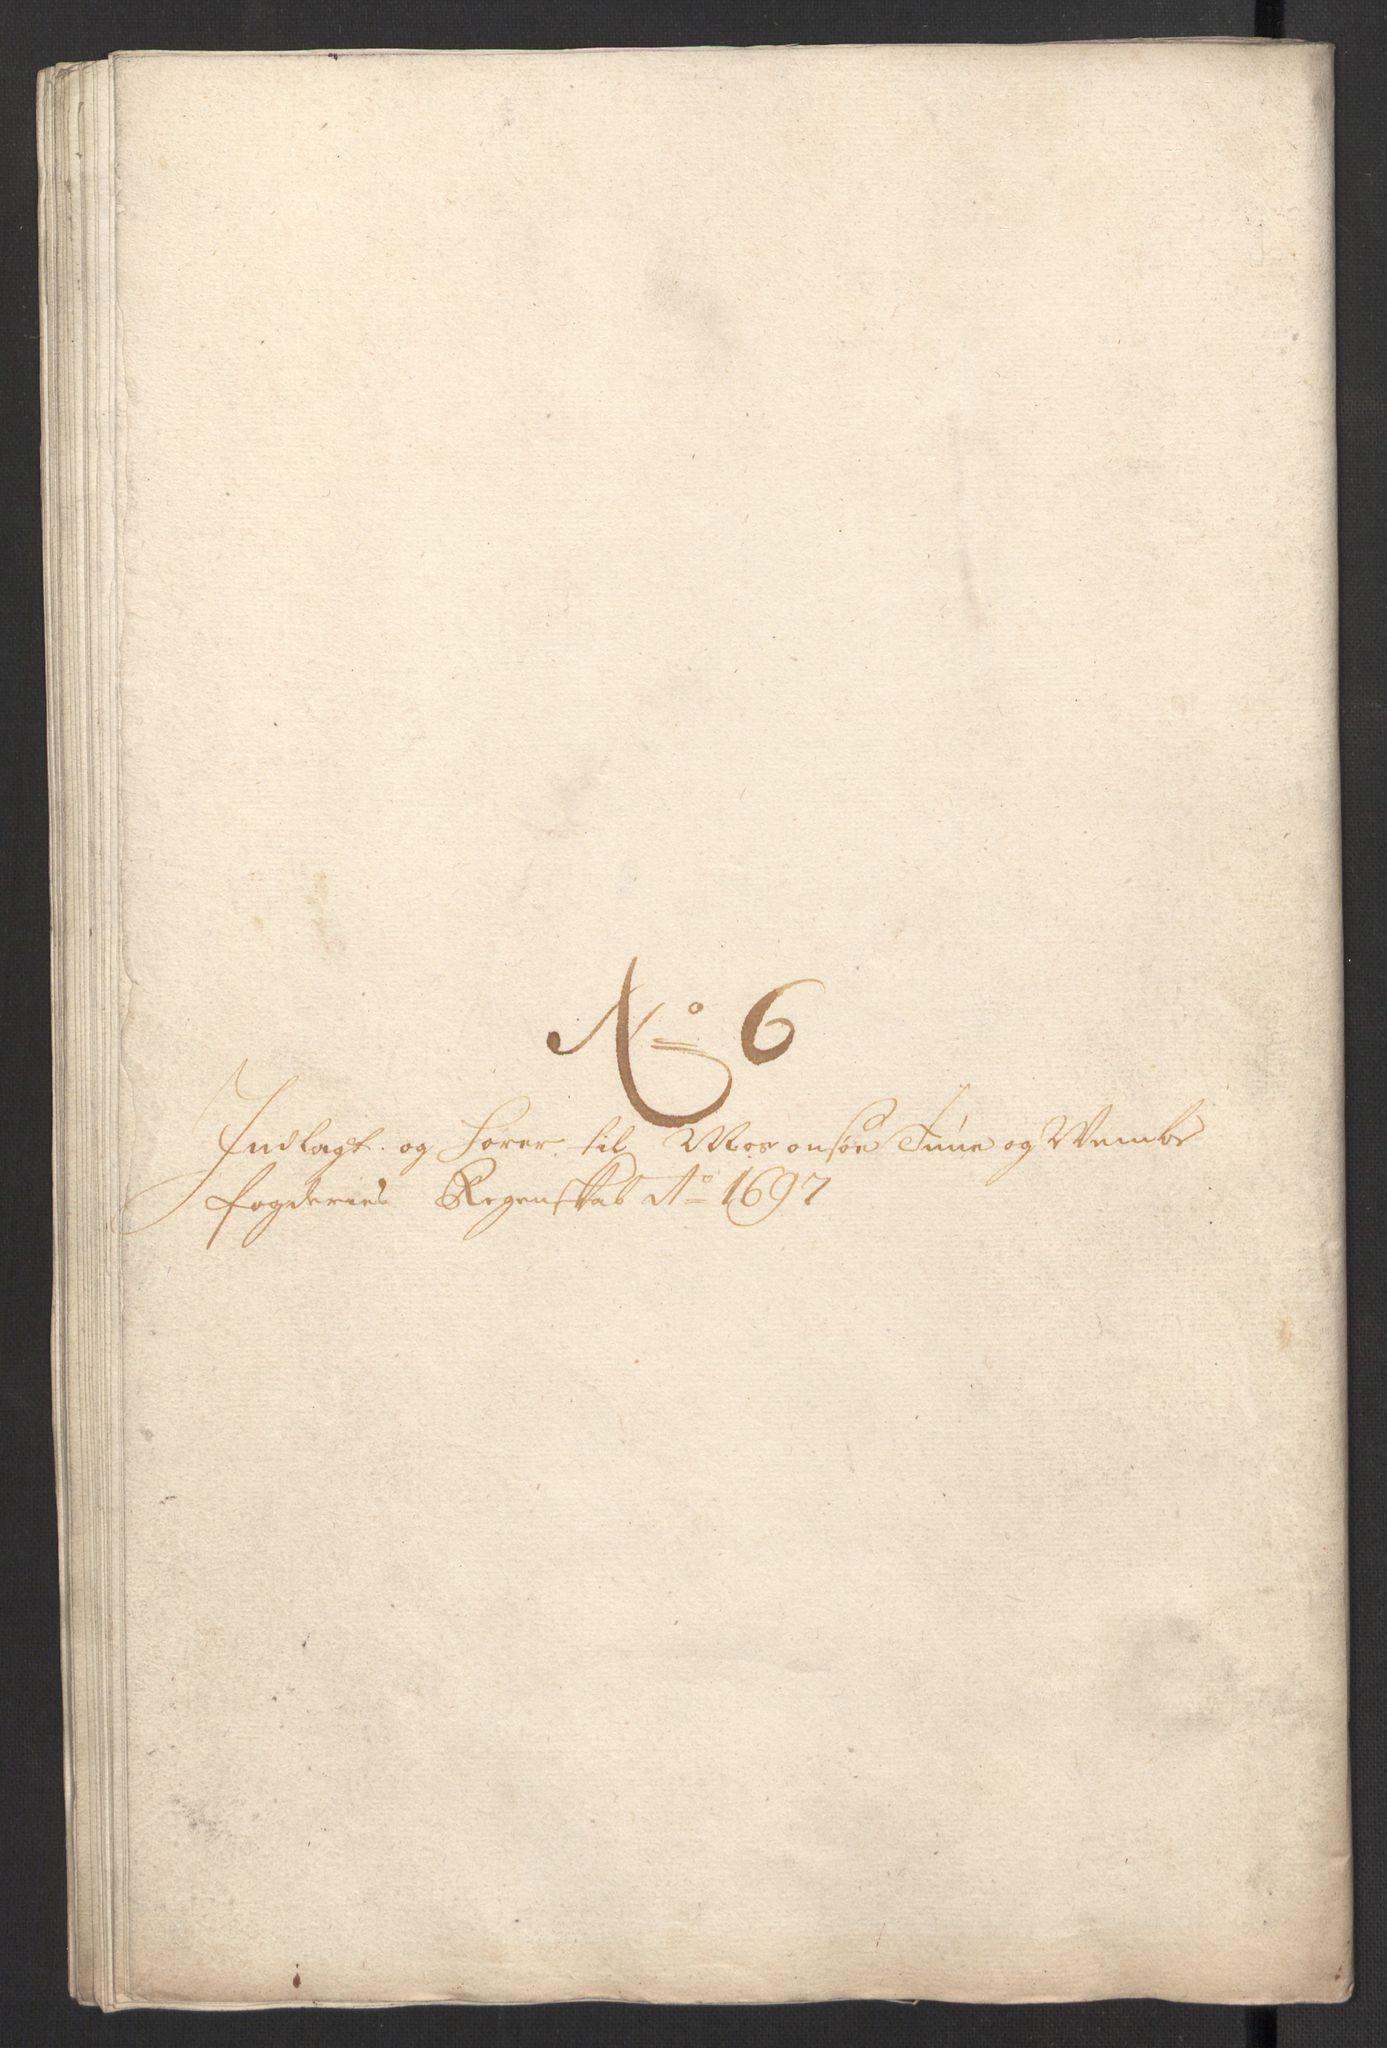 No 6
Indlagt og hører til Mos onsøe Tune og Wembe
fogderies Regenskab Ao 1697